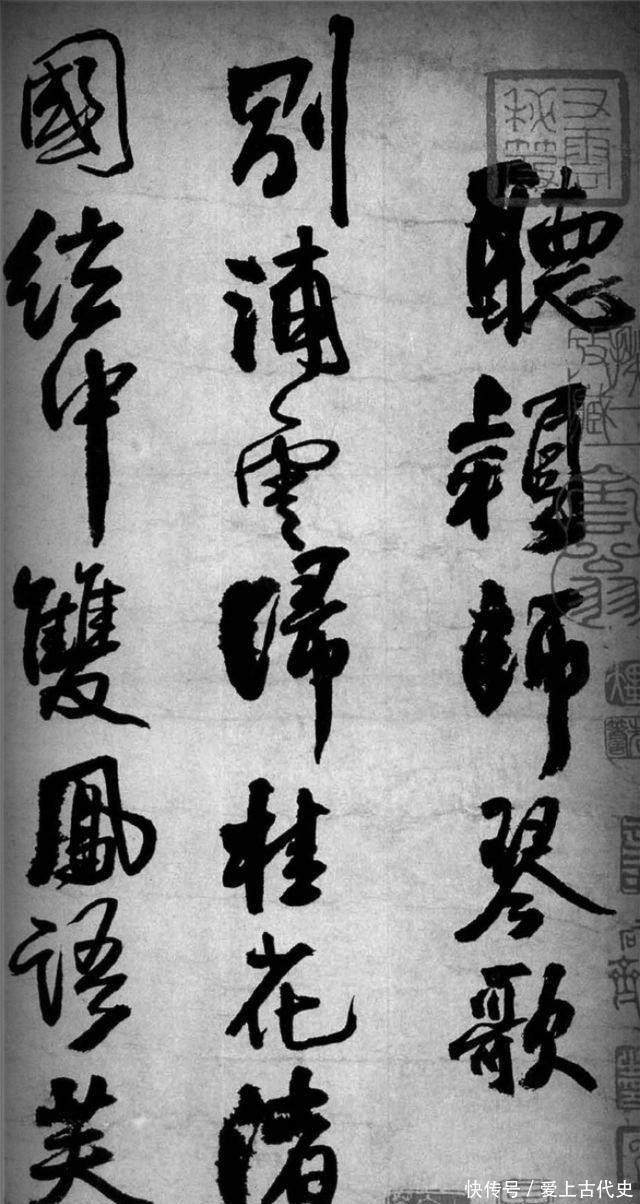 聽穎師琴歌
別浦雲歸桂花渚
國絃中雙鳳語芙
快传号/爱上古代史